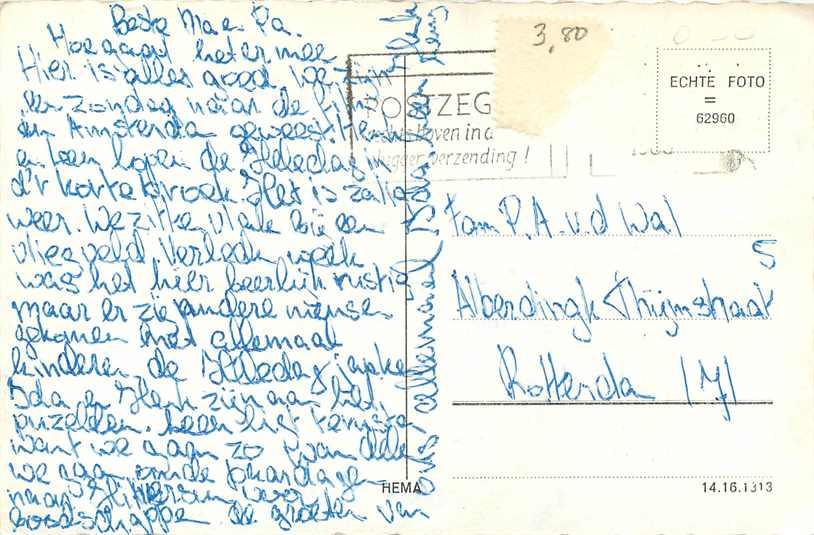 Beste Ma en Pa.
Hoe gaat het er mee
Hier is alles goed. We zijn
zondag naar de film
in Amsterda geweest.
en leen lopen de hele dag in
d'r korte broek. Het is zalig
weer. We zitte vlak bij een
vliegveld. Verlede week
was het hier heerlijk rustig
maar er zijn andere mensen
gekomen met allemaal
kinderen. de hele dag janke
Ida en Henk zijn aan het
puzelden. leen ligt
want we gaan zo wandele
we gaan om de paar dagen
naar Hilversum voor
boodschappe. de groeten van
ons allemaal
3,80
POSTZEG
verzending!
ECHTE FOTO
=
62960
Fam P.A.v.d Wal
S
Alberdingk Thijmstraat
Rotterda
HEMA
14.16.1313